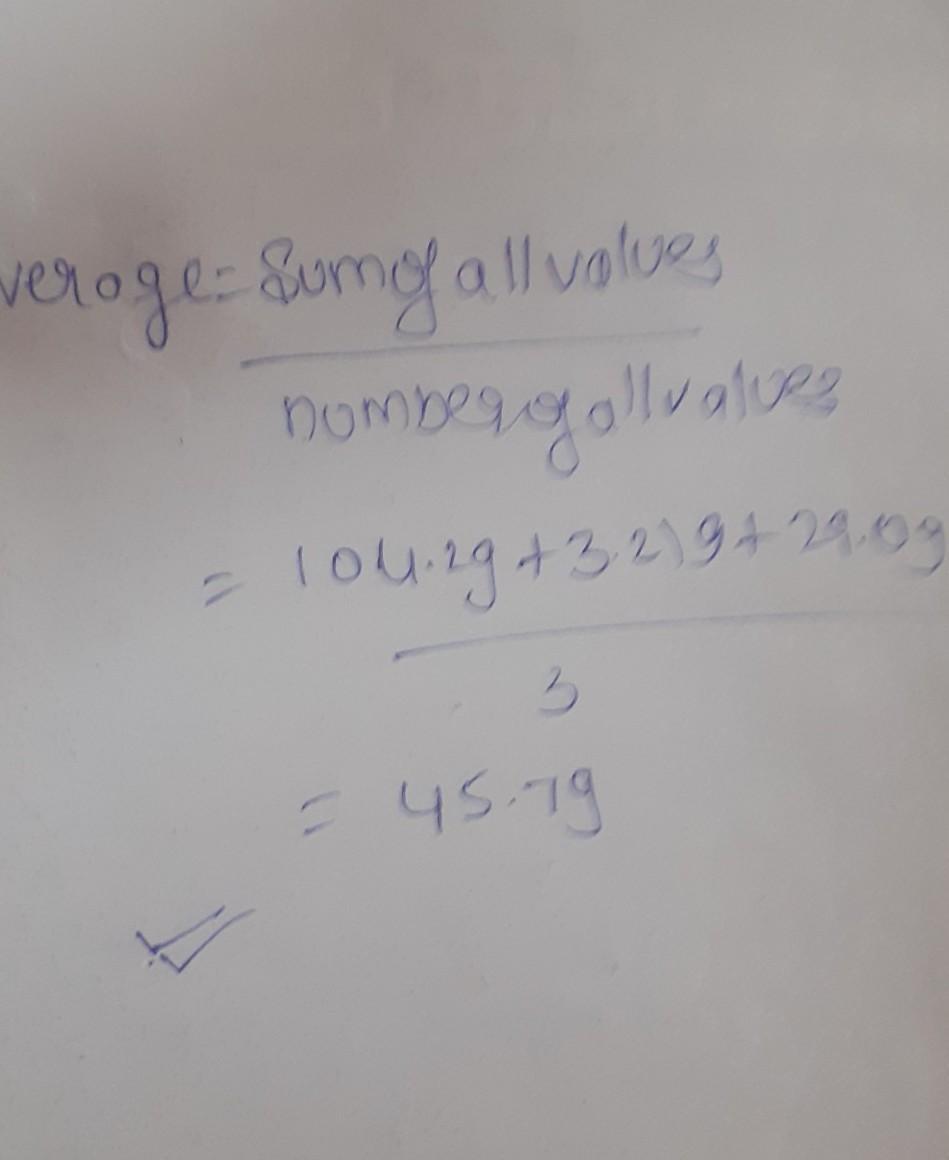 verage = Sum of all values
number of all values
= 104.2g + 3.21g + 29.0g
3
= 45.7g